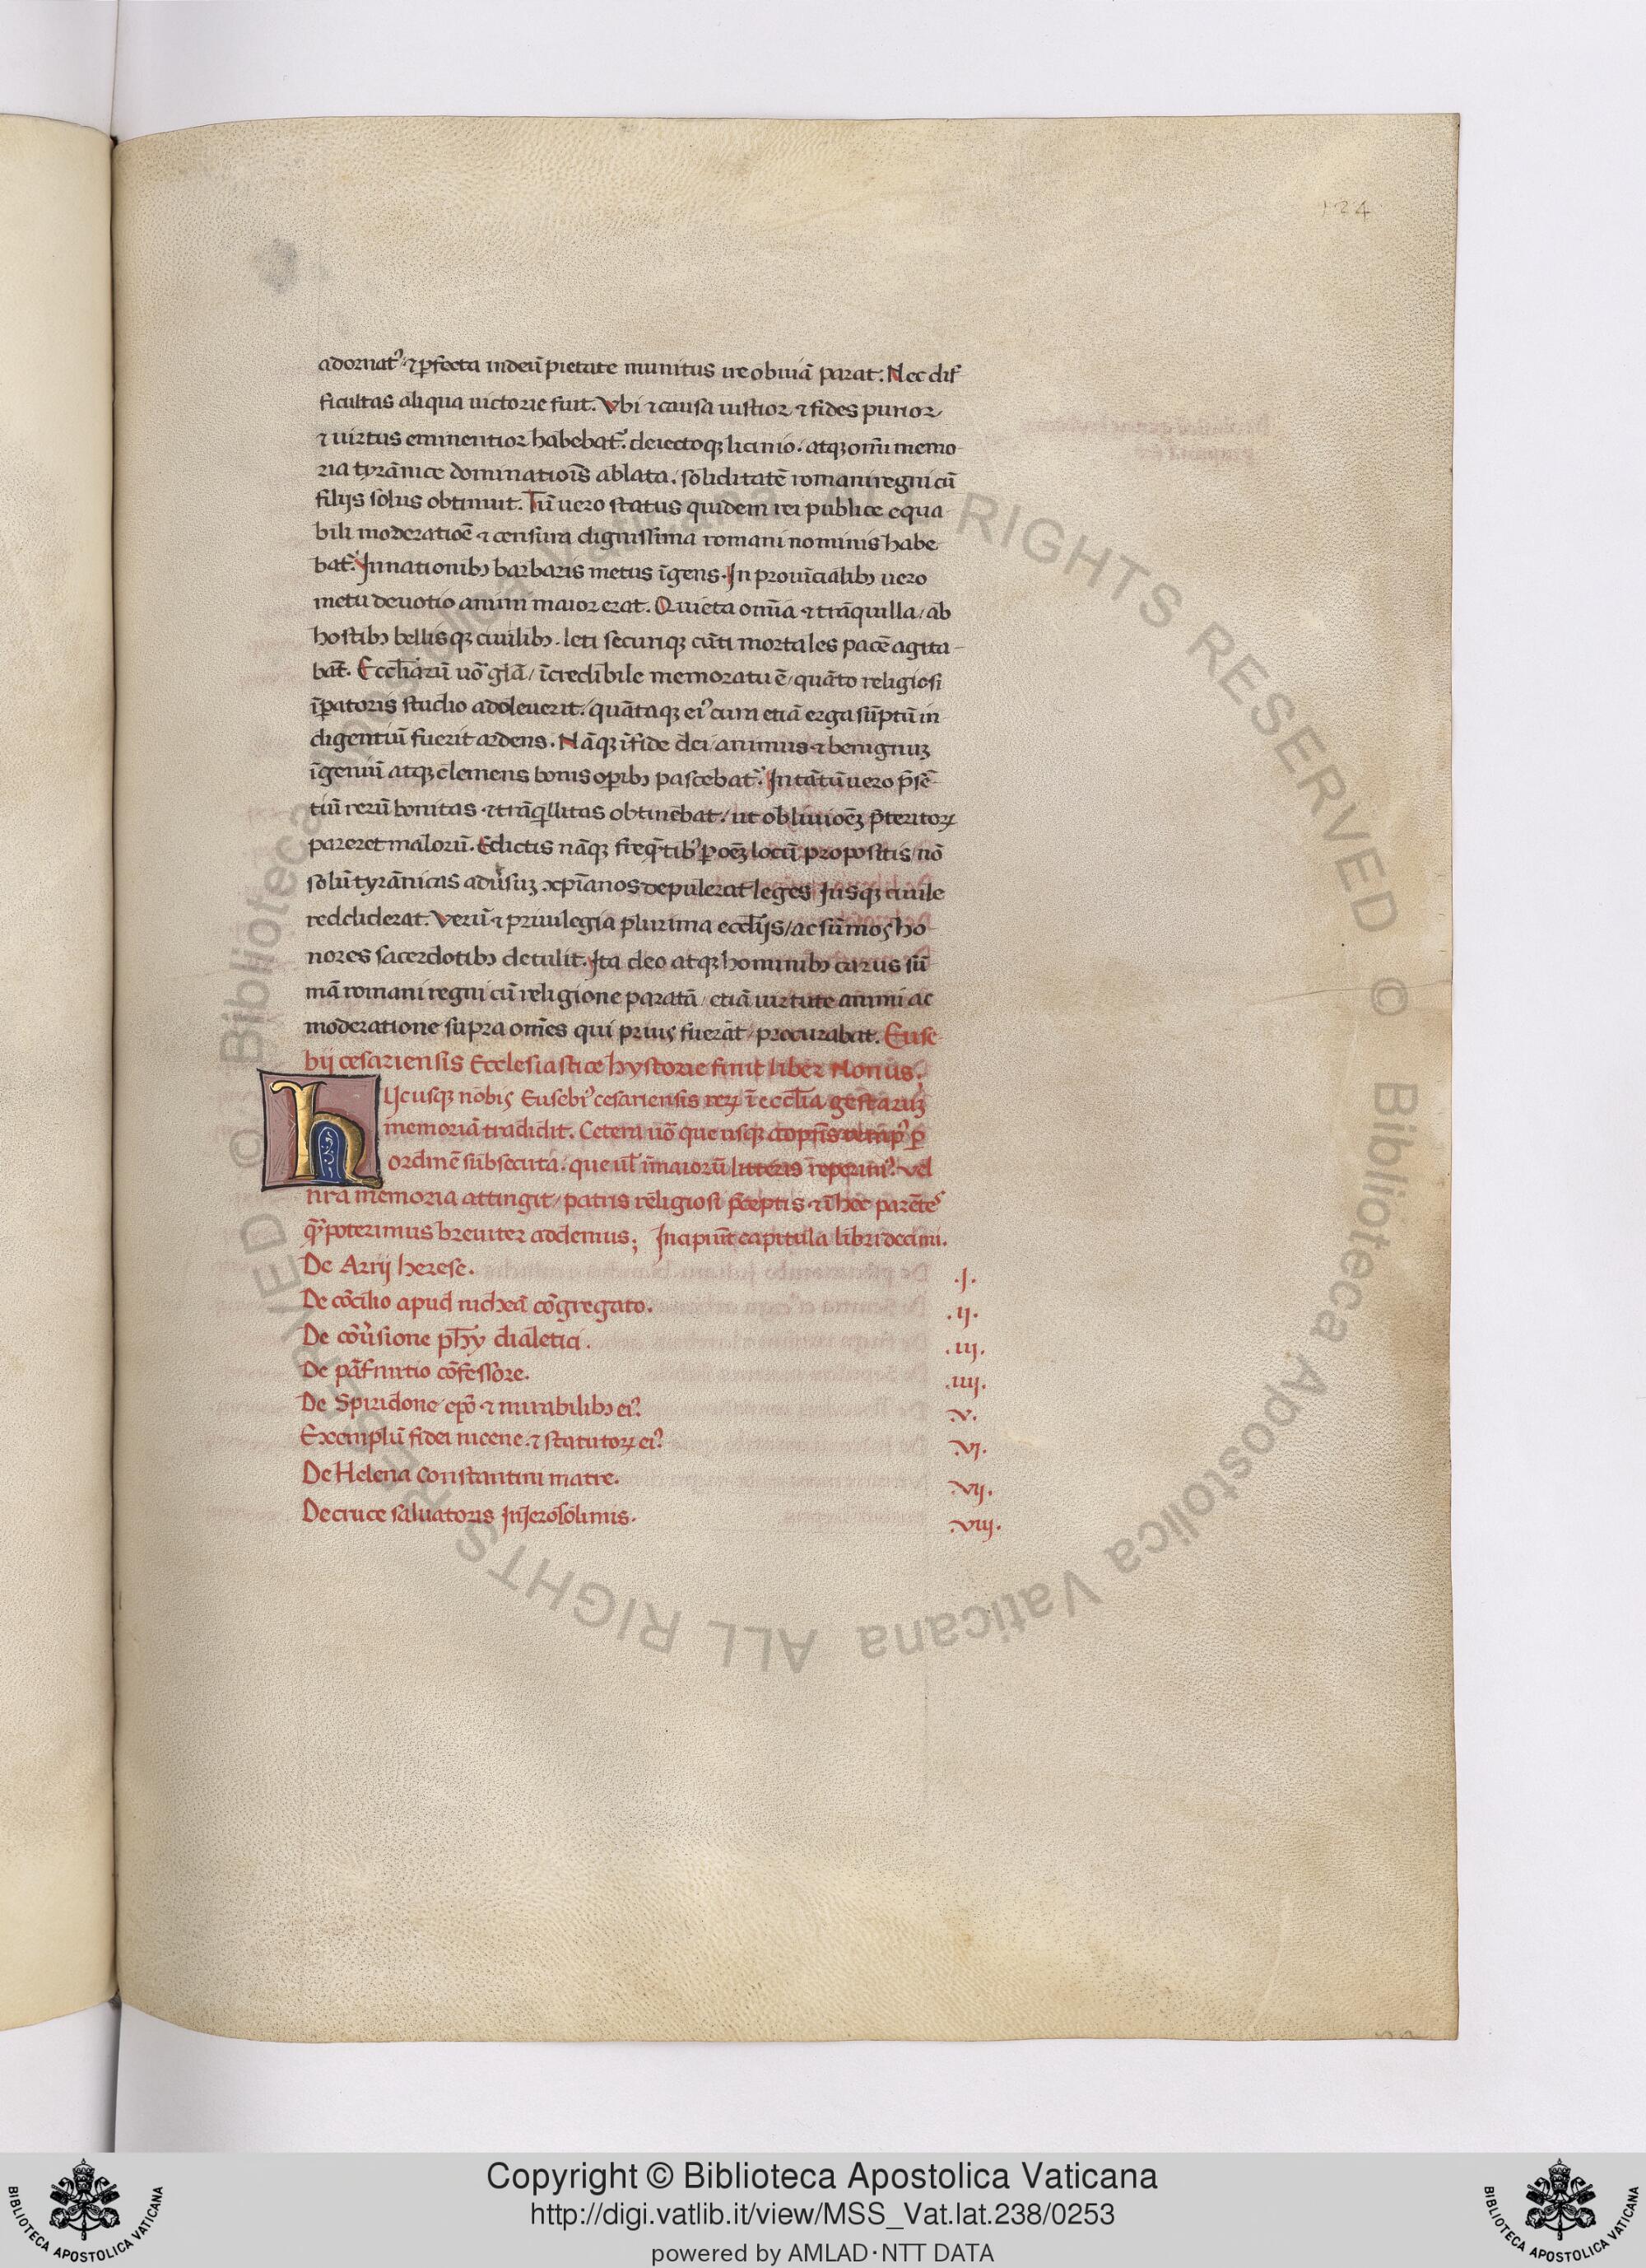 124
adornatꝰ ⁊ ꝑfecta in deū pietate munitus ire obuiā parat. Nec dif
ficultas aliqua uictorie fuit. Vbi ⁊ causa iustior ⁊ fides purior
⁊ uirtus eminentior habebat᷑. deiectoqꝫ licinio. atqꝫ om̄i memo
ria tyrānice dominatiōis ablata. soliditatē romani regni cū
filijs solus obtinuit. Tū uero status quidem rei publice equa
bili moderatiōe ⁊ censura dignissima romani nominis habe
bat᷑. In nationibꝫ barbaris metus īgens. In prouīcialibꝫ uero
metu deuotio animi maior erat. Quieta om̄ia ⁊ trāquilla / ab
hostibꝫ bellisqꝫ ciuilibꝫ. leti securiqꝫ cūti mortales pacē agita-
bāt. Eccl̄iarū uō gl̄a / īcredibile memoratu ē / quāto religiosi
īꝑatoris studio adoleuerit. quātaqꝫ eiꝰ cura etiā erga sūptū in
digentiū fuerit ardens. Nāqꝫ ī fide dei / animus ⁊ benignuꝫ
īgeniū atqꝫ clemens bonis oꝑibꝫ pascebat᷑. In tātū uero p̄sē-
tiū rerū bonitas ⁊ trāq̇llitas obtinebat / ut obliuioēꝫ p̄teritoꝝ
pareret malorū. Edictis nāqꝫ freq̄tibꝰ ꝑ oēꝫ locū propositis / nō
solū tyrānicas adūsuꝫ xp̄ianos depulerat leges Iusqꝫ ciuile
reddiderat. Verū ⁊ priuilegia plurima eccl̄ijs / ac sūmos ho
nores sacerdotibꝫ detulit. Ita deo atqꝫ hominibꝫ carus sū
mā romani regni cū religione paratā / etiā uirtute animi ac
moderatione supra om̄es qui prius fuerāt / procurabat. Euse
bij cesariensis Ecclesiastice hystorie finit liber Nonus;
hIjcusqꝫ nobis Eusebiꝰ cesariensis reꝝ ī eccl̄ia gestaruꝫ
memoriā tradidit. Cetera uō que usqꝫ ad p̄n̄s
ordinē subsecuta. que ul̄ ī maiorū litteris reperimꝰ. vel
nr̄a memoria attingit / patris religiosi p̄ceptis ⁊ ī hoc parētes
q̄ꝫ poterimus breuiter addemus; Incipiūt capitula libri decimi.
De Arrij herese. .I.
De cōcilio apud nicheā cōgregato. .ij.
De cōūsione ph̄y dialetici. .iij.
De pāfnutio cōfessore. .iiij.
De Spiridone ep̄o ⁊ mirabilibꝫ eiꝰ. .v.
Exemplū fidei nicene. ⁊ statutoꝝ eiꝰ. .vi.
De Helena Constantini matre. .vij.
De cruce saluatoris In Ierosolimis. .viij.
Copyright © Biblioteca Apostolica Vaticana
http://digi.vatlib.it/view/MSS_Vat.lat.238/0253
powered by AMLAD·NTT DATA
BIBLIOTECA APOSTOLICA VATICANA
BIBLIOTECA APOSTOLICA VATICANA
© Biblioteca Apostolica Vaticana ALL RIGHTS RESERVED © Biblioteca Apostolica Vaticana ALL RIGHTS RESERVED